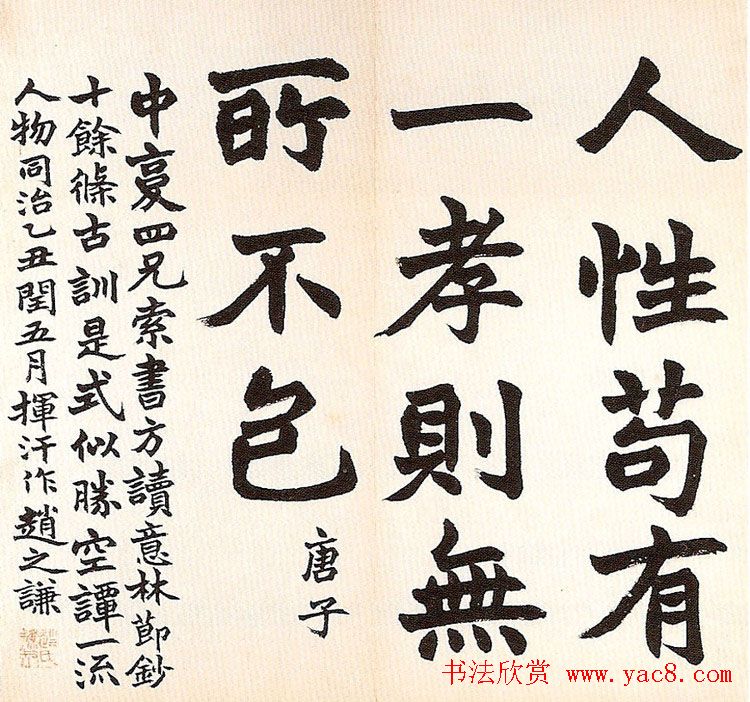 人性苟有
一孝則無
所不包
唐子
中四兄索書方讀意林節鈔
十餘條古訓是式似勝空譚一流
人物同治乙丑閏五月揮汗作趙之謙
书法欣赏 www.yac8.com